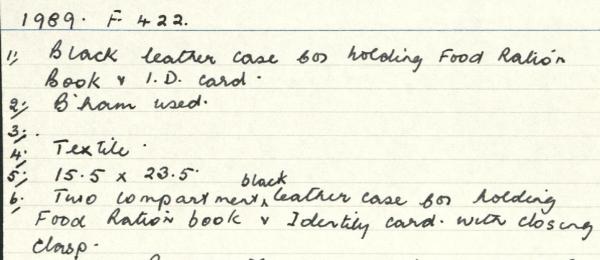 1989. F 422.
1, Black leather case for holding Food Ration
Book & I.D. card.
2, B'ham used.
3, .
4, Textile.
5, 15.5 x 23.5.
6. Two compartment, black leather case for holding
Food Ration book & Identity card. with closing
clasp.